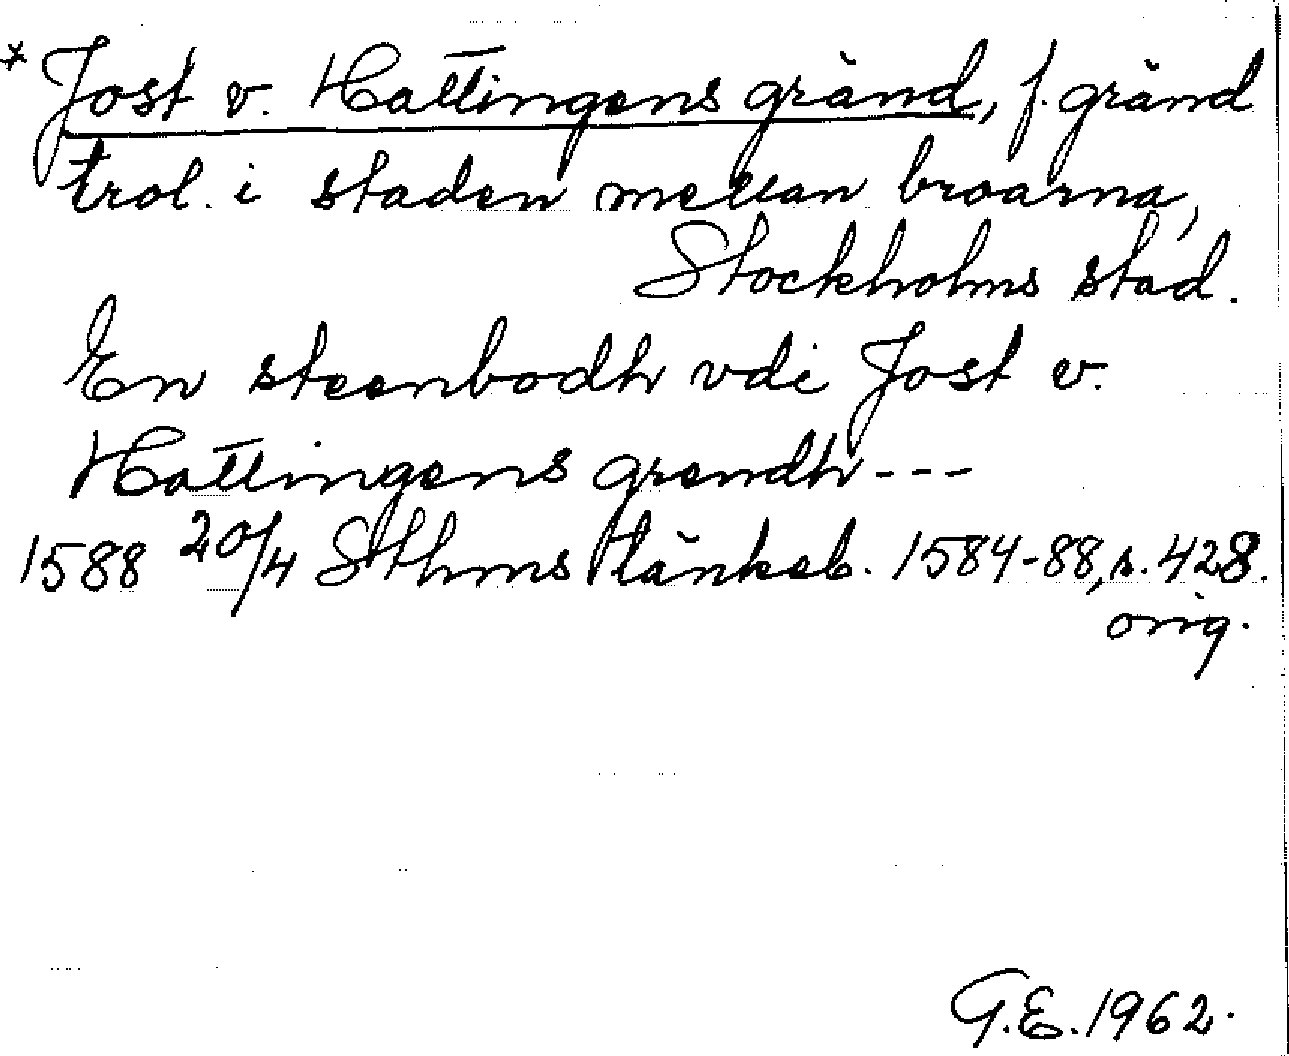 * Jost v. Hattingens gränd, f. gränd
trol. i staden mellan broarna,
Stockholms stad.
En steenbodh vdi Jost v.
Hattingens grendh ---
1588 20/4 Sthms tänkeb. 1584-88, s. 428.
orig.
G.E. 1962.